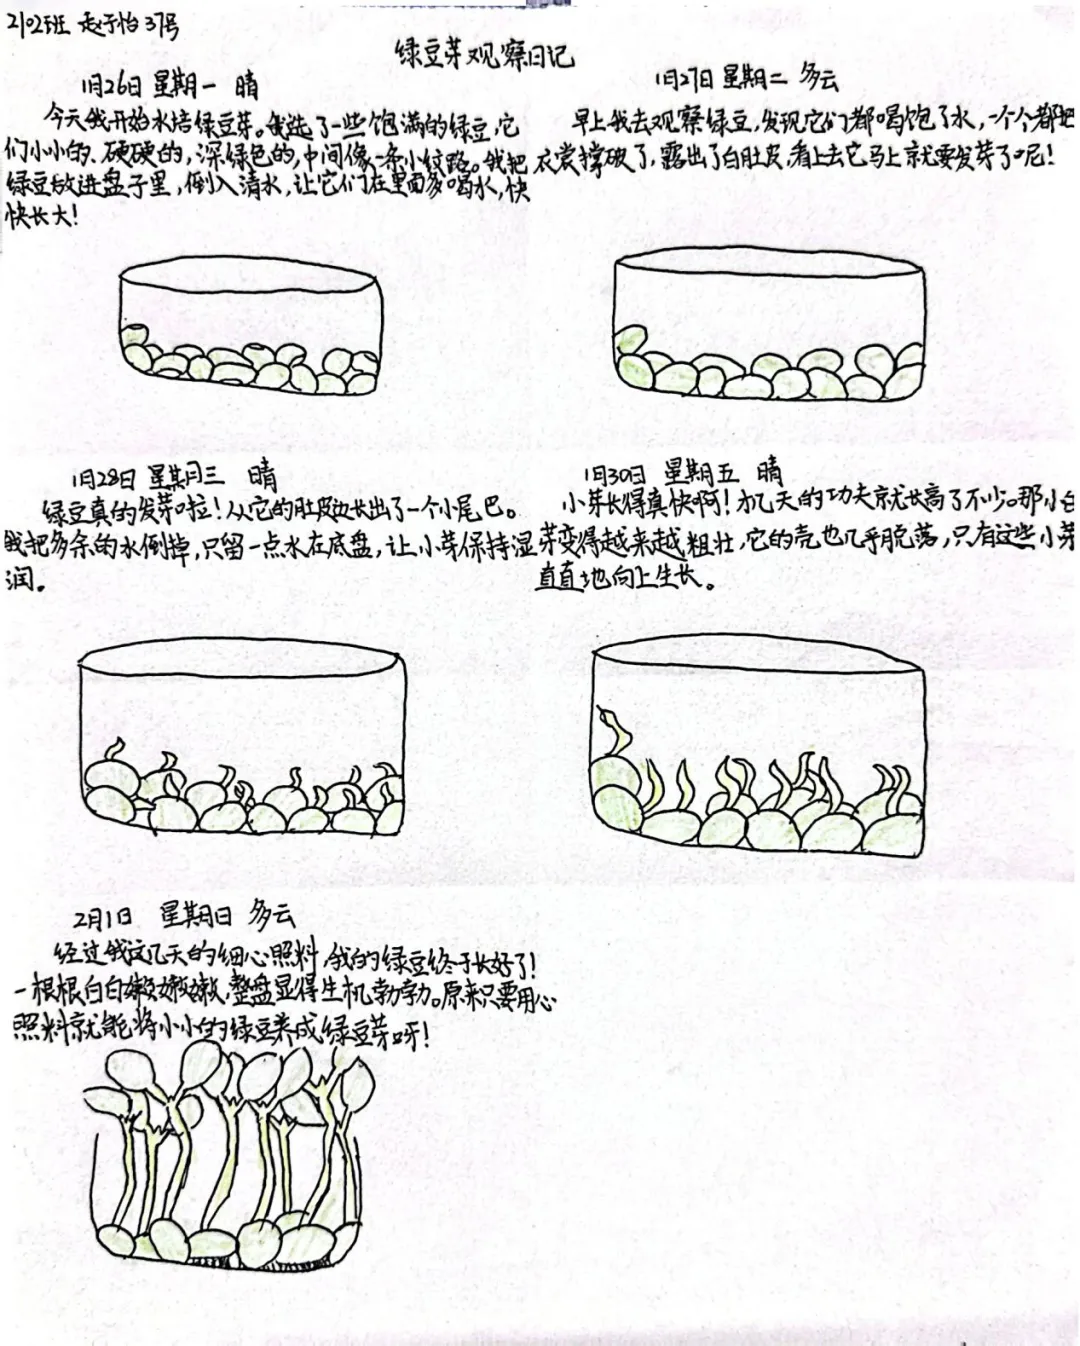 2102班 赵于怡 37号
绿豆芽观察日记
1月26日 星期一 晴
今天我开始水培绿豆芽。我选了一些饱满的绿豆,它
们小小的、硬硬的,深绿色的,中间像一条小纹路。我把
绿豆放进盘子里,倒入清水,让它们在里面多喝水,快
快长大!
1月27日 星期二 多云
早上我去观察绿豆,发现它们都喝饱了水,一个个都把
衣裳撑破了,露出了白肚皮,看上去它马上就要发芽了呢!
1月28日 星期三 晴
绿豆真的发芽啦!从它的肚皮边长出了一个小尾巴。
我把多余的水倒掉,只留一点水在底盘,让小芽保持湿
润。
1月30日 星期五 晴
小芽长得真快啊!才几天的功夫就长高了不少。那小白
芽变得越来越粗壮,它的壳也几乎脱落,只有这些小芽
直直地向上生长。
2月1日 星期日 多云
经过我这几天的细心照料,我的绿豆终于长好了!
一根根白白嫩嫩嫩,整盘显得生机勃勃。原来只要用心
照料就能将小小的绿豆养成绿豆芽呀!